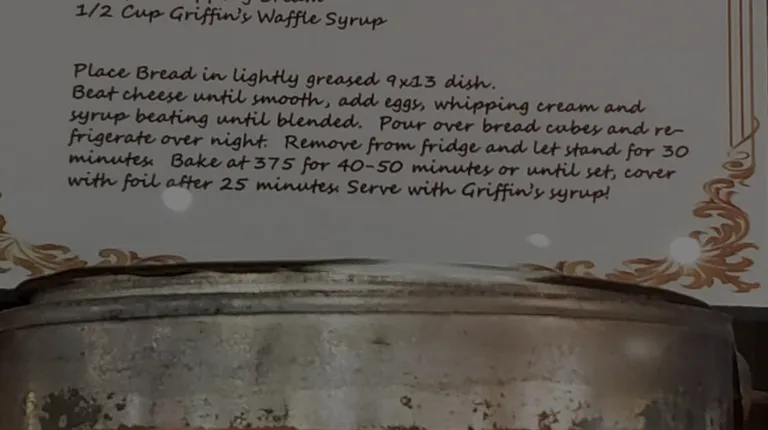 1/2 Cup Griffin's Waffle Syrup
Place Bread in lightly greased 9x13 dish.
Beat cheese until smooth, add eggs, whipping cream and
syrup beating until blended. Pour over bread cubes and re-
frigerate over night. Remove from fridge and let stand for 30
minutes. Bake at 375 for 40-50 minutes or until set, cover
with foil after 25 minutes. Serve with Griffin's syrup!